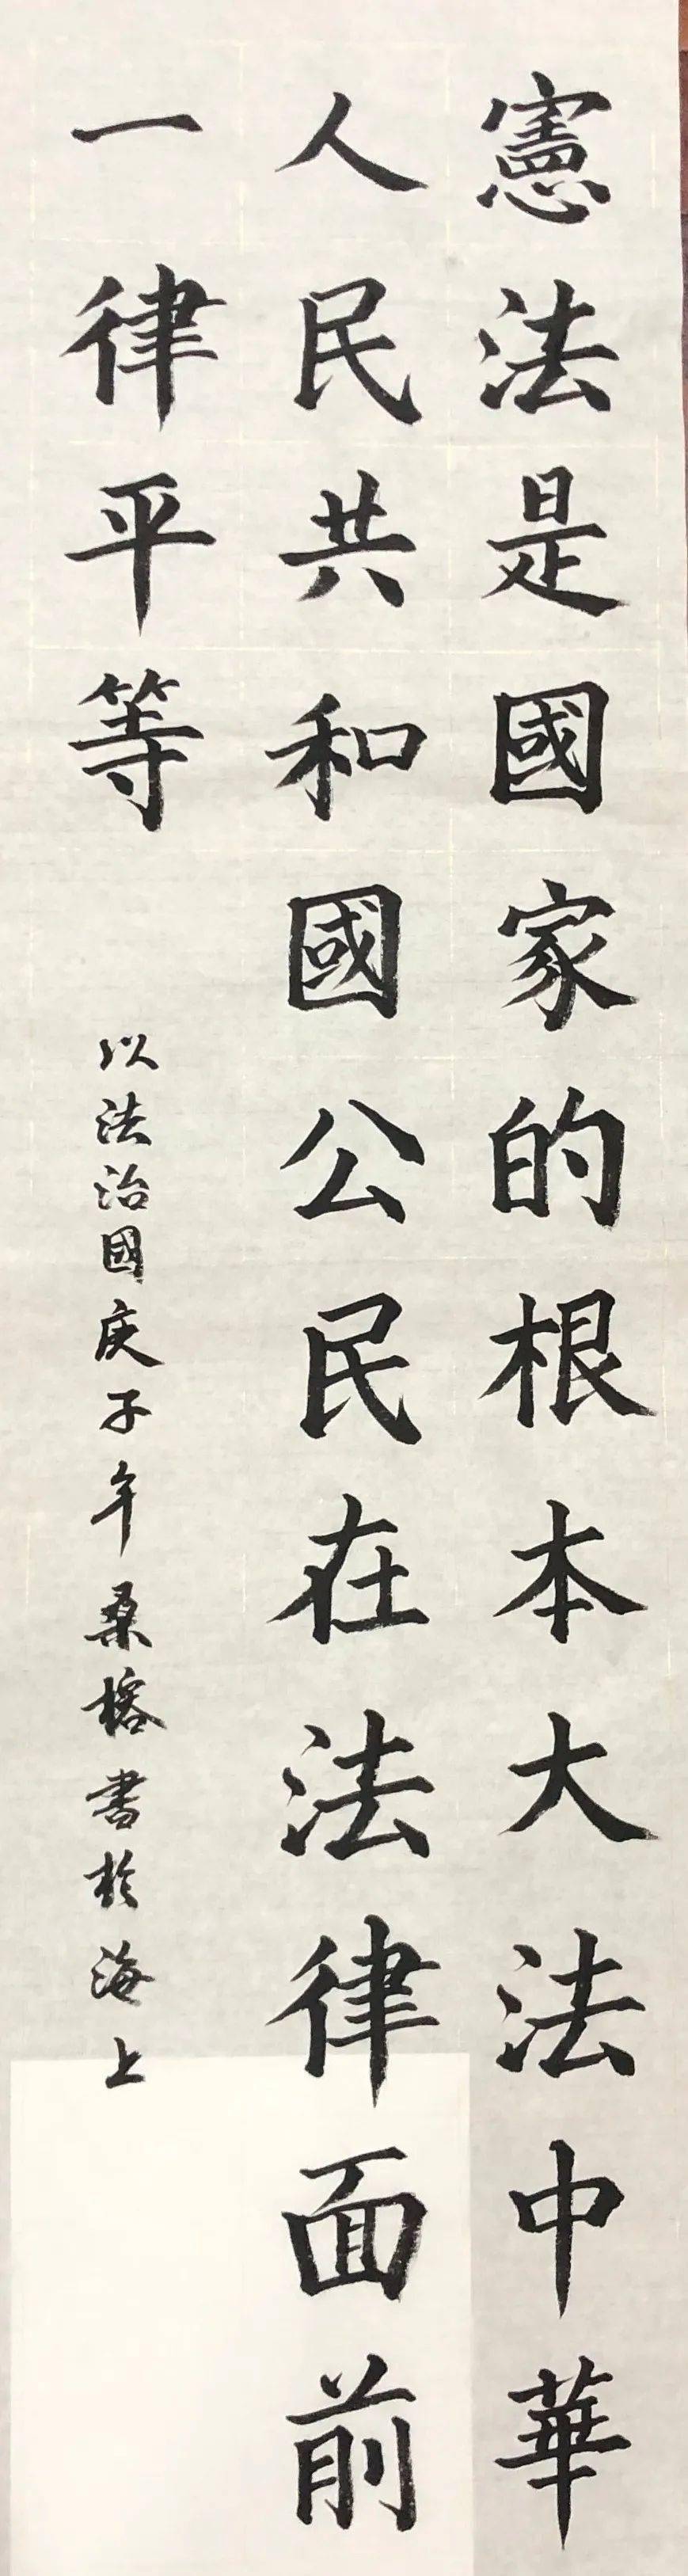 憲法是國家的根本大法中華
人民共和國公民在法律面前
一律平等
以法治國庚子年桑榕書於海上